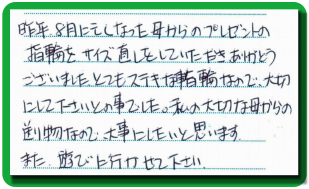 昨年8月に亡くなった母からのプレゼントの
指輪をサイズ直しをしていただきありがとう
ございましたとてもステキな指輪なので、大切
にして下さいとの事でした。私の大切な母からの
送り物なので、大事にしたいと思います。
また、遊びに行かせて下さい。